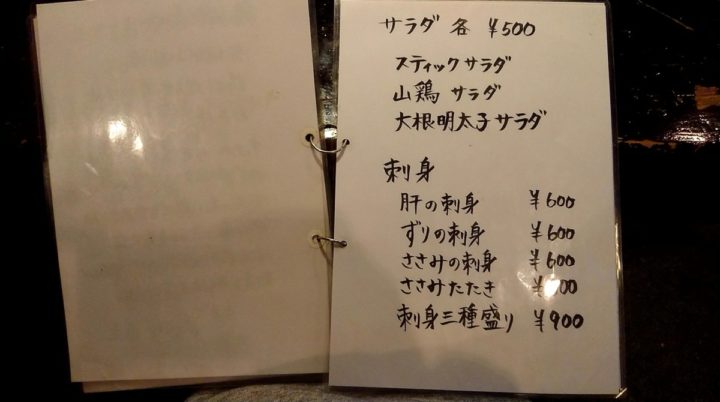 サラダ 各 ¥500
スティックサラダ
山鶏 サラダ
大根明太子サラダ
刺身
肝の刺身 ¥600
ずりの刺身 ¥600
ささみの刺身 ¥600
ささみたたき
刺身三種盛り ¥900